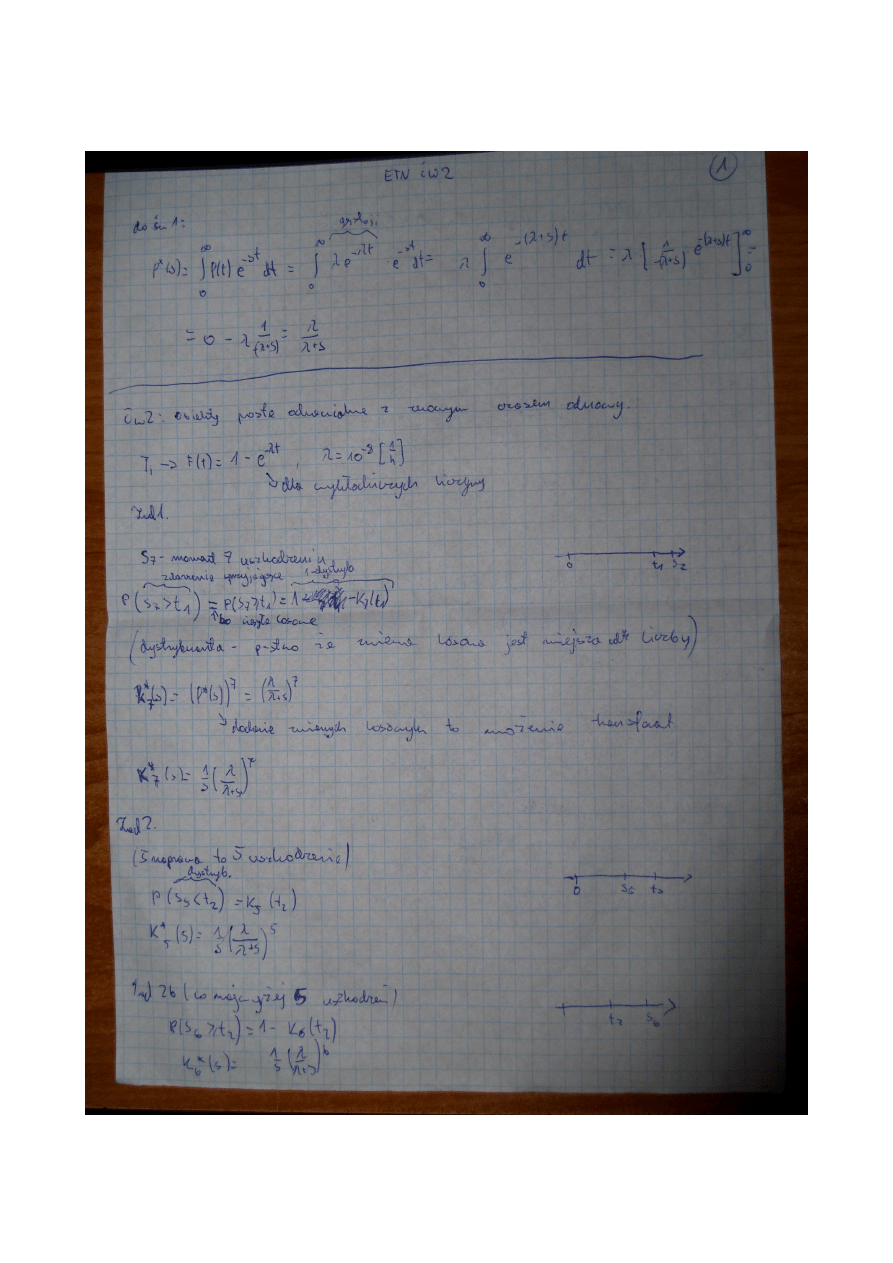 ETN ćw2
1
do ćw 1:
gęstość
p*(s) = ∫₀^∞ p(t) e^{-st} dt = ∫₀^∞ λe^{-λt} · e^{-st} dt = λ ∫₀^∞ e^{-(λ+s)t} dt = λ [1/-(λ+s) e^{-(λ+s)t}]₀^∞ =
= 0 - λ 1/-(λ+s) = λ/λ+s
ćw2: obiekty proste odnawialne z czasem odnowy.
T₁ → F(t) = 1 - e^{-λt}, λ = 10^{-8} [1/h]
↳ dla wykładniczych liczymy
Zad 1.
S₇ - moment 7 uszkodzenia
zdarzenie sprzyjające 1-dystryb
0 t₁ s₂
P(S₇ > t₁) = P(S₇ ≥ t₁) = 1 - K₇(t₁)
↑ bo ciągłe losowe
(dystrybuanta - p-stwo że zmienna losowa jest mniejsza od liczby)
k₇*(s) = (p*(s))⁷ = (λ/λ+s)⁷
↳ dodanie zmiennych losowych to mnożenie transformat
K₇*(s) = 1/s (λ/λ+s)⁷
Zad 2.
(5 naprawa to 5 uszkodzenie)
dystryb.
P(S₅ < t₂) = K₅(t₂)
0 S₅ t₂
K₅*(s) = 1/s (λ/λ+s)⁵
Zad 2b (co najwyżej 5 uszkodzeń)
P(S₆ ≥ t₂) = 1 - K₆(t₂)
t₂ S₆
K₆*(s) = 1/s (λ/λ+s)⁶